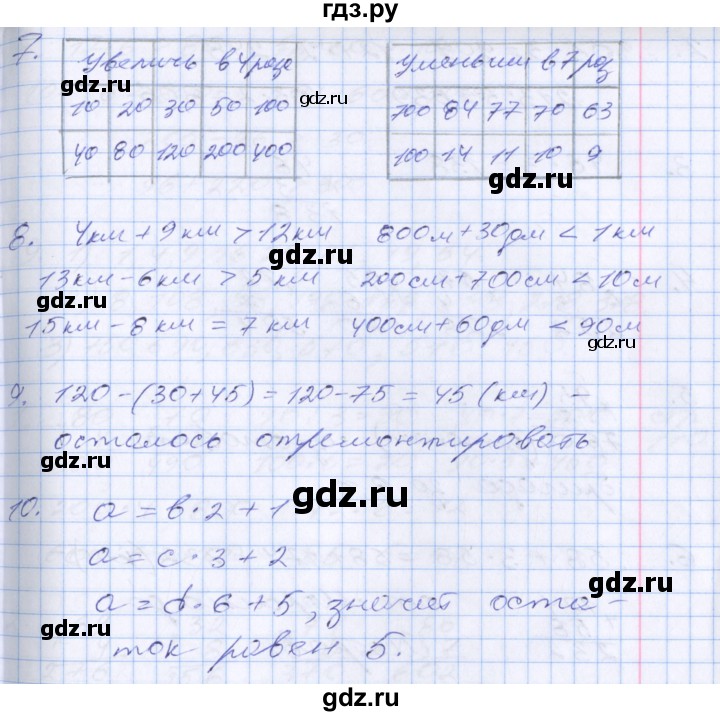 гдз.ру
7.
Увеличь в 4 раза
10 20 30 50 100
40 80 120 200 400
gdz.ru
gdz.ru
Уменьши в 7 раз
700 84 77 70 63
100 14 11 10 9
gdz.ru
8. 4км + 9 км > 12 км 800м + 30дм < 1 км
gdz.ru
13 км - 6 км > 5 км 200см + 700см < 10 м
gdz.ru
15 км - 8 км = 7 км 400см + 60дм < 90м
gdz.ru
9. 120 - (30 + 45) = 120 - 75 = 45 (км) -
gdz.ru
осталось отремонтировать
gdz.ru
gdz.ru
10. a = b · 2 + 1
a = c · 3 + 2
gdz.ru
a = d · 6 + 5, значит оста -
gdz.ru
ток равен 5.
gdz.ru
gdz.ru